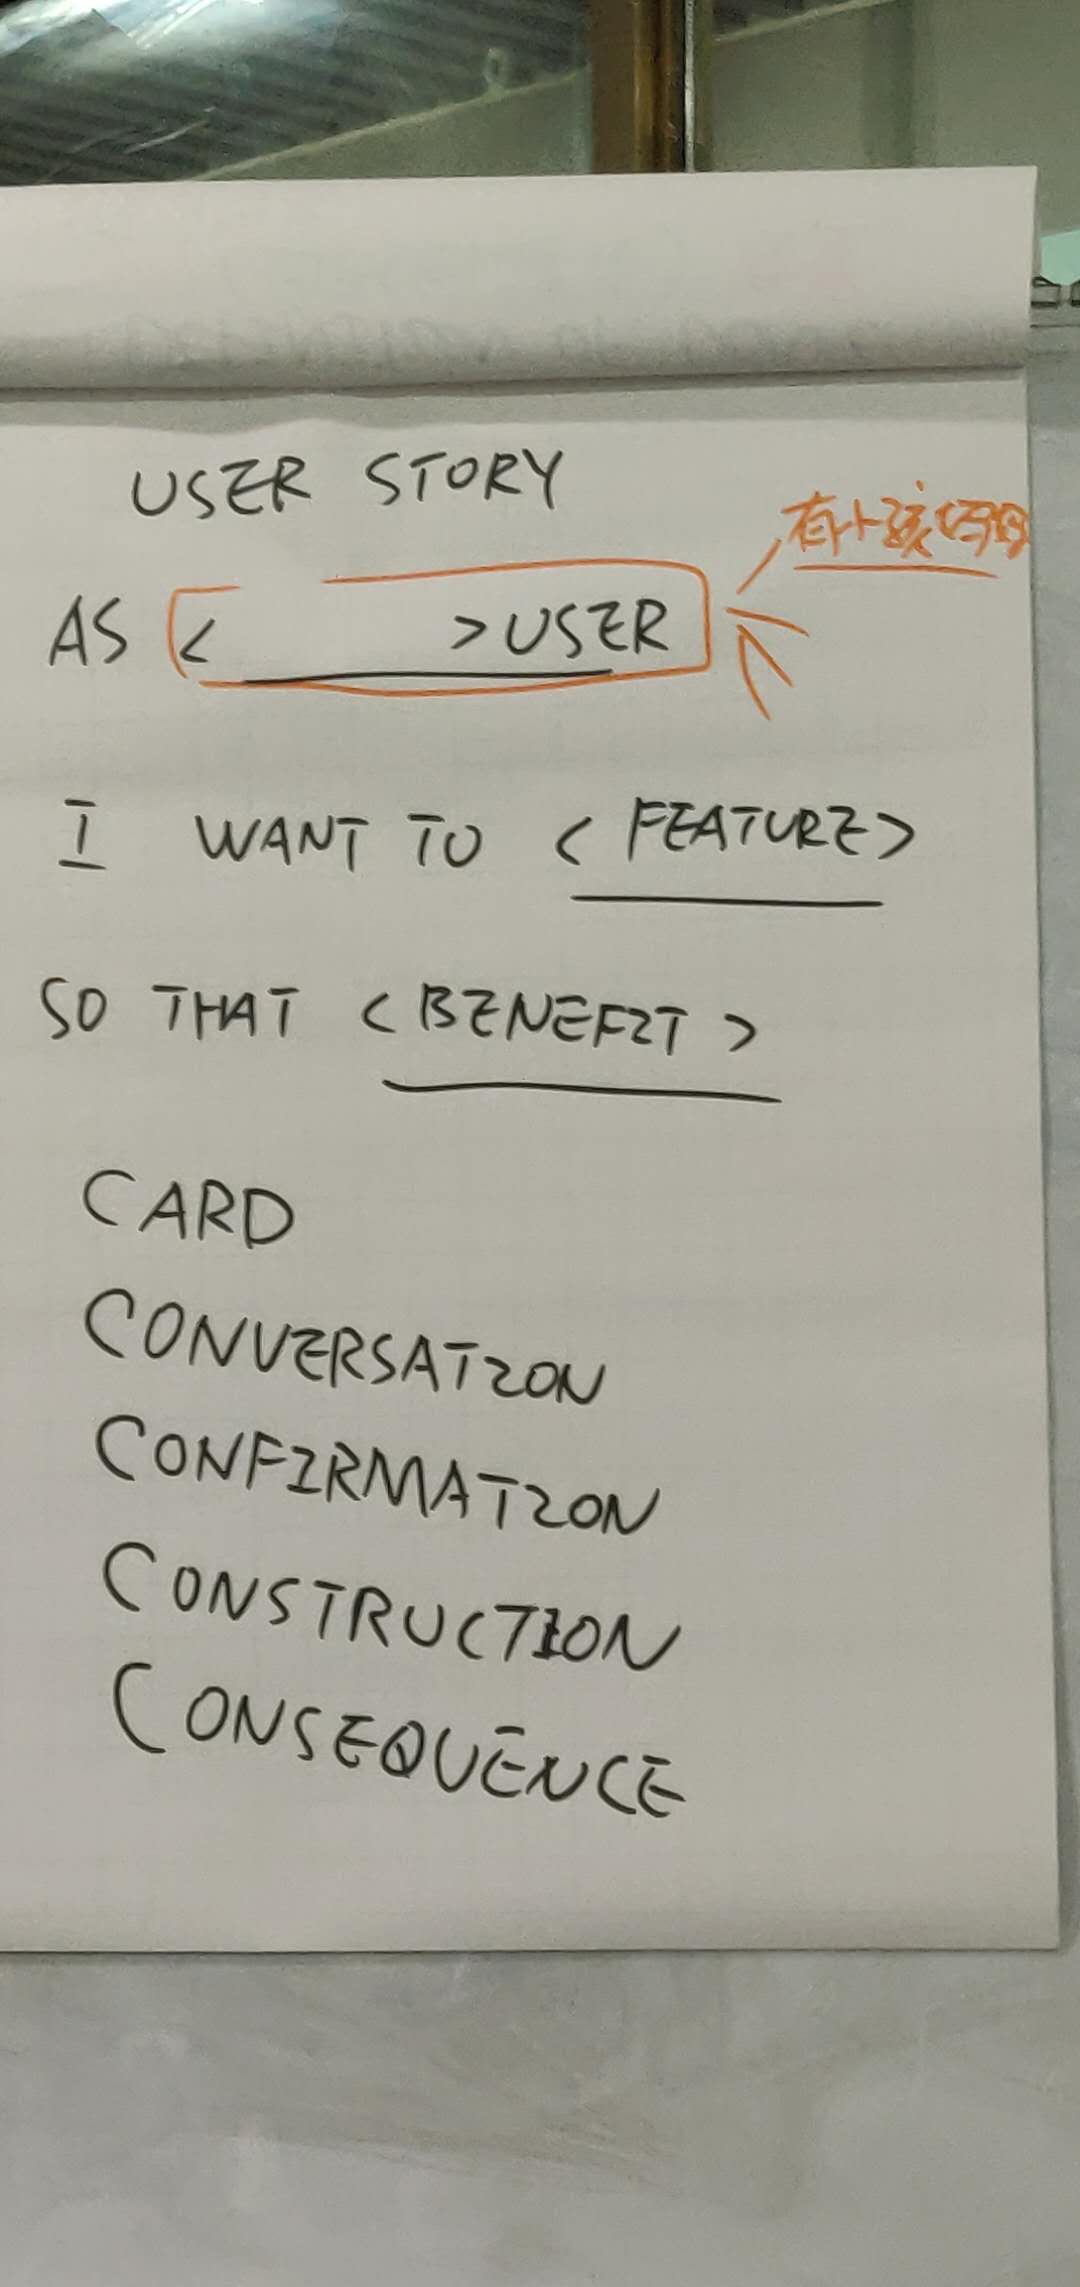 USER STORY
有小孩的
AS < >USER
I WANT TO <FEATURE>
SO THAT <BENEFIT>
CARD
CONVERSATION
CONFIRMATION
CONSTRUCTION
CONSEQUENCE